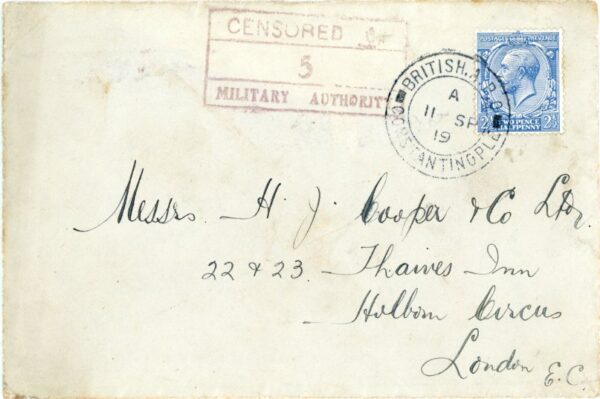 CENSORED
5
MILITARY AUTHORITY
BRITISH.A.P.O.
A
11 SP
19
CONSTANTINOPLE
POSTAGE REVENUE
2½ TWO PENCE 2½
HALFPENNY
Messrs. H. J. Cooper & Co Ltd.
22 & 23. Thaives Inn
Holborn Circus
London E.C.